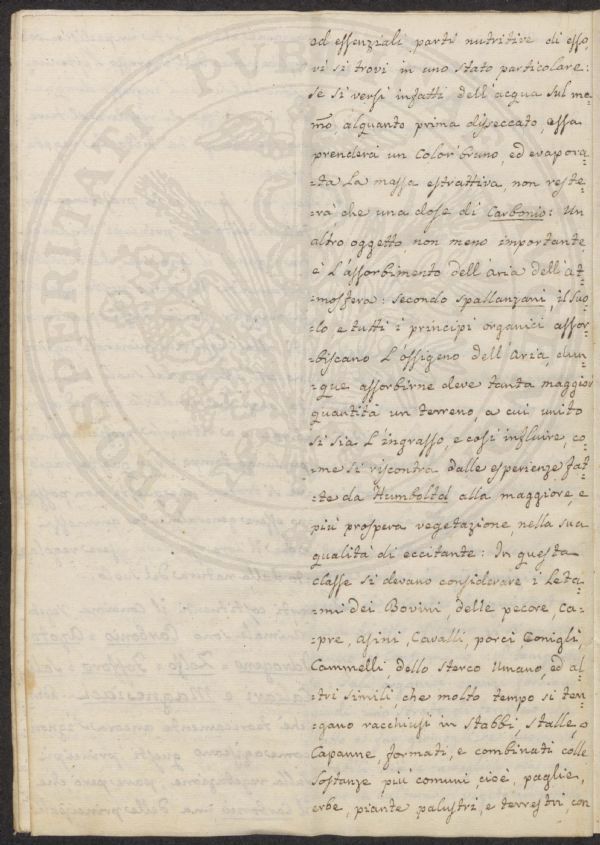 ed essenziali parti nutritive di esso,
vi si trovi in uno stato particolare:
Se si versi infatti dell'acqua sul me-
-mo, alquanto prima disseccato, essa
prenderà un Color bruno, ed evapora-
-ta La massa estrattiva, non reste-
-rà, che una dose di Carbonio: Un
altro oggetto, non meno importante,
è L'assorbimento dell'aria dell'at-
-mosfera: secondo Spallanzani, il suo-
-lo e tutti i principi organici assor-
-biscano L'ossigeno dell'aria, dun-
-que assorbirne deve tanta maggior
quantità un terreno, a cui unito
si sia L'ingrasso, e così influire, co-
-me si riscontra dalle esperienze fat-
-te da Humboltd alla maggiore, e
più prospera vegetazione, nella sua
qualità di eccitante: In questa
classe si devano considerare i Leta-
-mi dei Bovini, delle pecore, Ca-
-pre, asini, Cavalli, porci Conigli,
Cammelli, dello sterco Umano, ed al-
-tri simili, che molto tempo si ten-
-gano racchiusi in stabbi, stalle, o
Capanne, formati, e combinati colle
sostanze più comuni, cioè, paglie,
erbe, piante palustri, e terrestri, con
I PROSPERITALI PUB